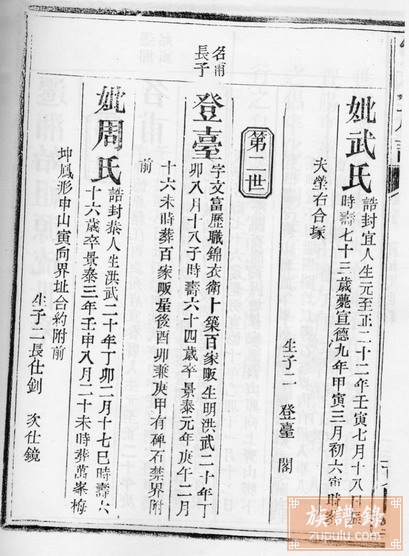 妣武氏
誥封宜人生元至正二十二年壬寅七月十八辰
時壽七十三歲薨宣德九年甲寅三月初六寅時葬
夫塋右合塚
生子二 登臺 閣
第二世
名甫
長子
登臺
字文富歷職錦衣衛卜築百家畈生明洪武二十年丁
卯八月十八子時壽六十四歲卒景泰元年庚午二月
十六未時葬百家畈屋後酉卯兼庚甲有碑石禁界附
前
妣周氏
誥封恭人生洪武二十年丁卯二月十七巳時壽六
十六歲卒景泰三年壬申八月二十未時葬萬峯梅
坤鳳形申山寅向界址合約附前
生子二長仕釗 次仕鏡
族譜錄
zupulu.com